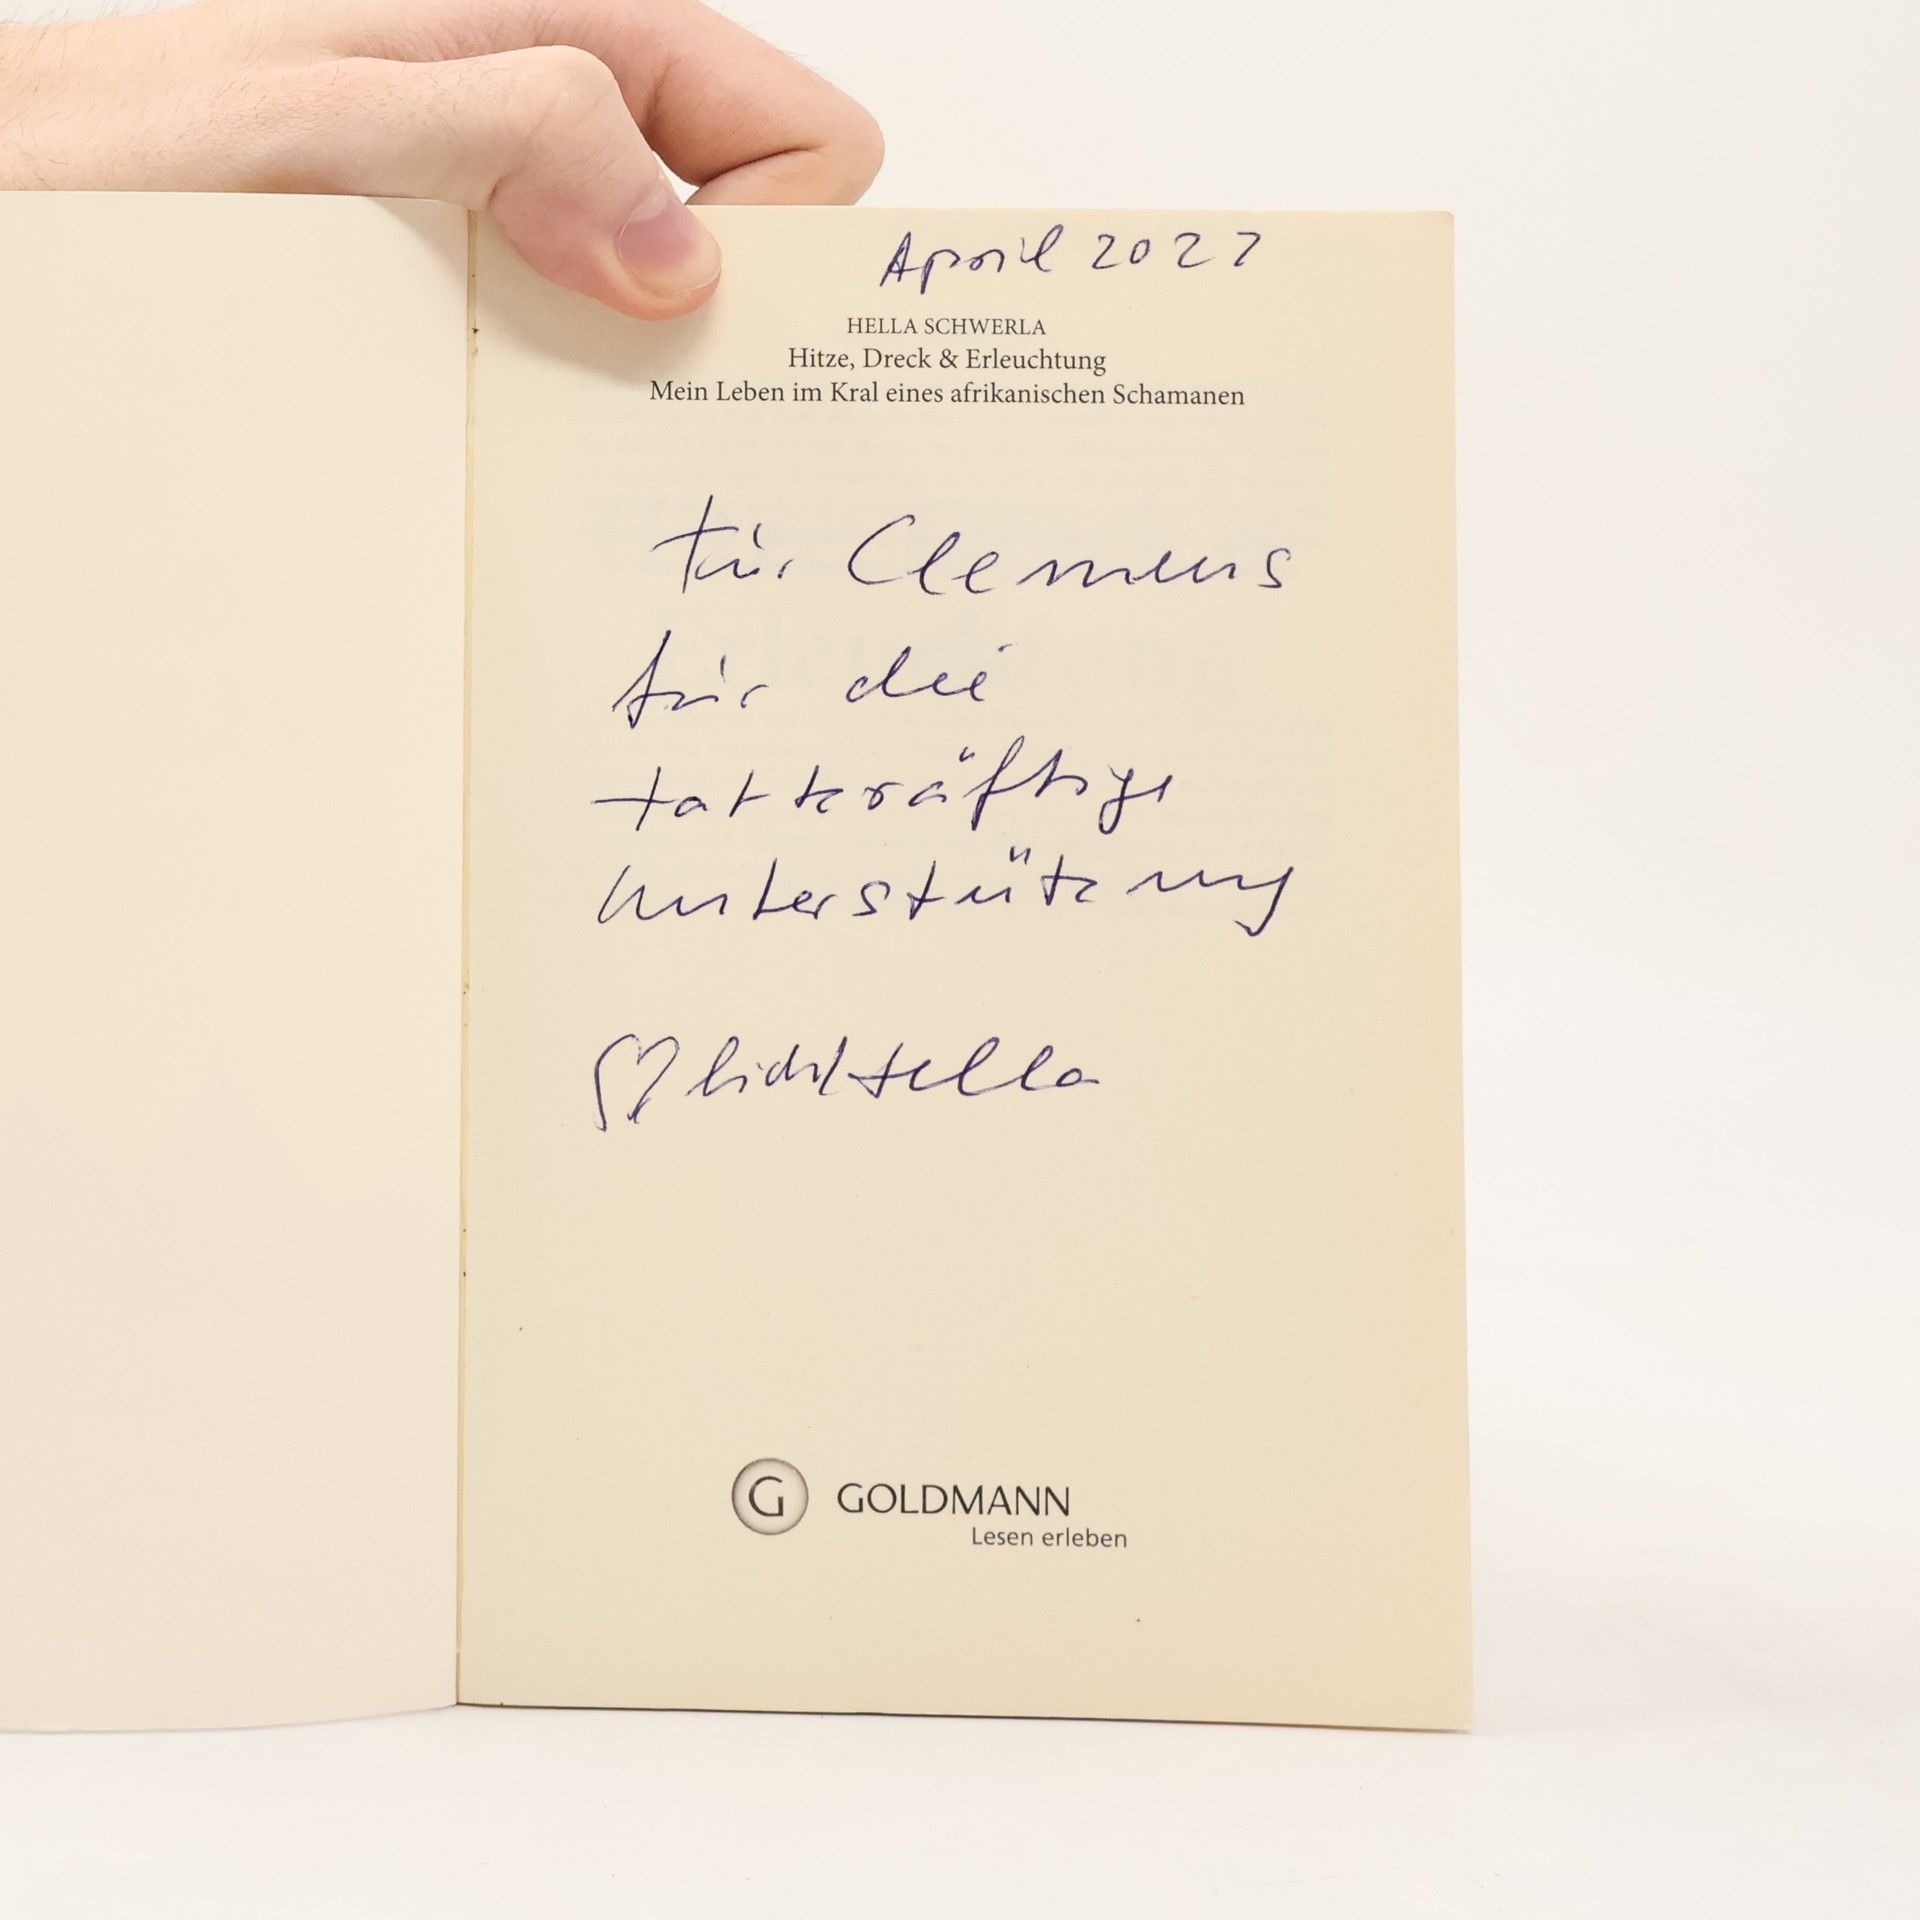 April 2022
HELLA SCHWERLA
Hitze, Dreck & Erleuchtung
Mein Leben im Kral eines afrikanischen Schamanen
Für Clemens
für die
tatkräftige
Unterstützung
♡lichst Hella
G GOLDMANN
Lesen erleben